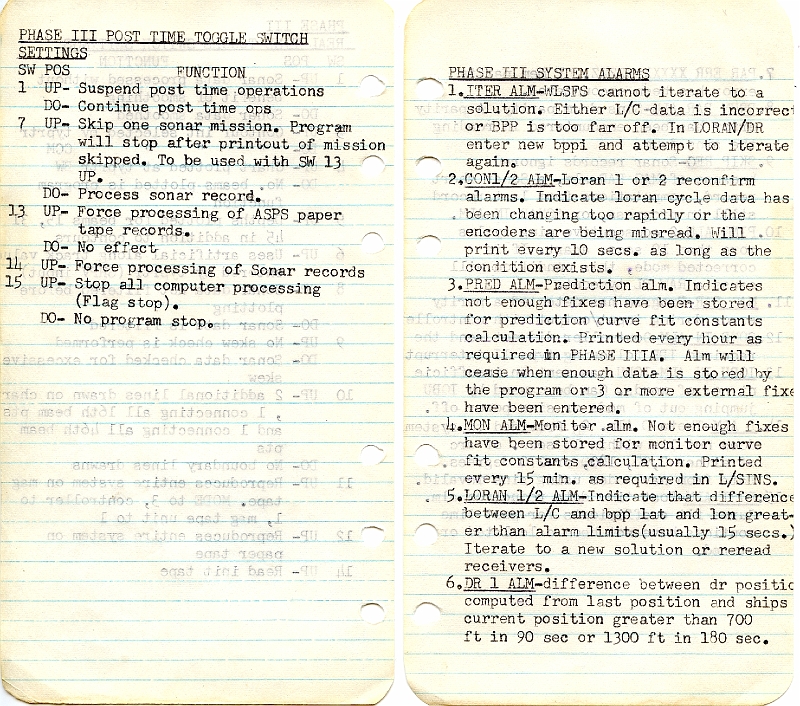 PHASE III POST TIME TOGGLE SWITCH
SETTINGS
SW POS FUNCTION
1 UP- Suspend post time operations
DO- Continue post time ops
7 UP- Skip one sonar mission. Program
will stop after printout of mission
skipped. To be used with SW 13
UP.
DO- Process sonar record.
13 UP- Force processing of ASPS paper
tape records.
DO- No effect
14 UP- Force processing of Sonar records
15 UP- Stop all computer processing
(Flag stop).
DO- No program stop.
PHASE III SYSTEM ALARMS
1. ITER ALM-WLSFS cannot iterate to a
solution. Either L/C data is incorrect
or BPP is too far off. In LORAN/DR
enter new bppi and attempt to iterate
again.
2. CON1/2 ALM-Loran 1 or 2 reconfirm
alarms. Indicate loran cycle data has
been changing too rapidly or the
encoders are being misread. Will
print every 10 secs. as long as the
condition exists.
3. PRED ALM-Prediction alm. Indicates
not enough fixes have been stored
for prediction curve fit constants
calculation. Printed every hour as
required in PHASE IIIA. Alm will
cease when enough data is stored by
the program or 3 or more external fixe
have been entered.
4. MON ALM-Monitor alm. Not enough fixes
have been stored for monitor curve
fit constants calculation. Printed
every 15 min. as required in L/SINS.
5. LORAN 1/2 ALM-Indicate that difference
between L/C and bpp lat and lon great-
er than alarm limits(usually 15 secs.)
Iterate to a new solution or reread
receivers.
6. DR 1 ALM-difference between dr positio
computed from last position and ships
current position greater than 700
ft in 90 sec or 1300 ft in 180 sec.